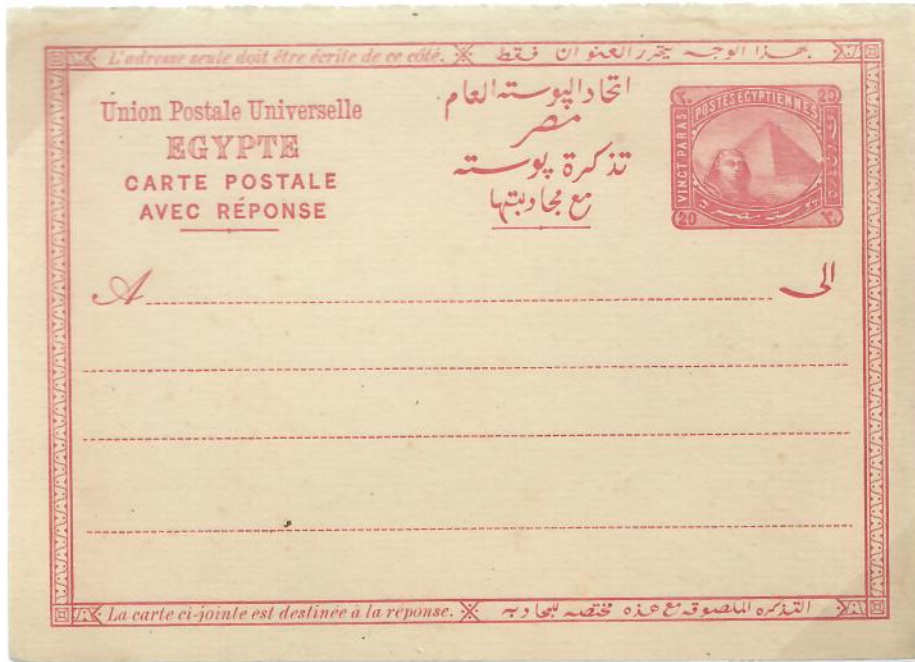 L'adresse seule doit être écrite de ce côté.
بهذا الوجه يتحرر العنوان فقط
Union Postale Universelle
EGYPTE
CARTE POSTALE
AVEC RÉPONSE
اتحاد البوسته العام
مصر
تذكرة بوسته
مع مجاوبتها
٢٠ POSTES EGYPTIENNES 20
VINGT PARAS
بوستة مصريه
20 ٢٠
A
الى
La carte ci-jointe est destinée à la réponse.
التذكره الملصوقه مع هذه مختصه للمجاوبه